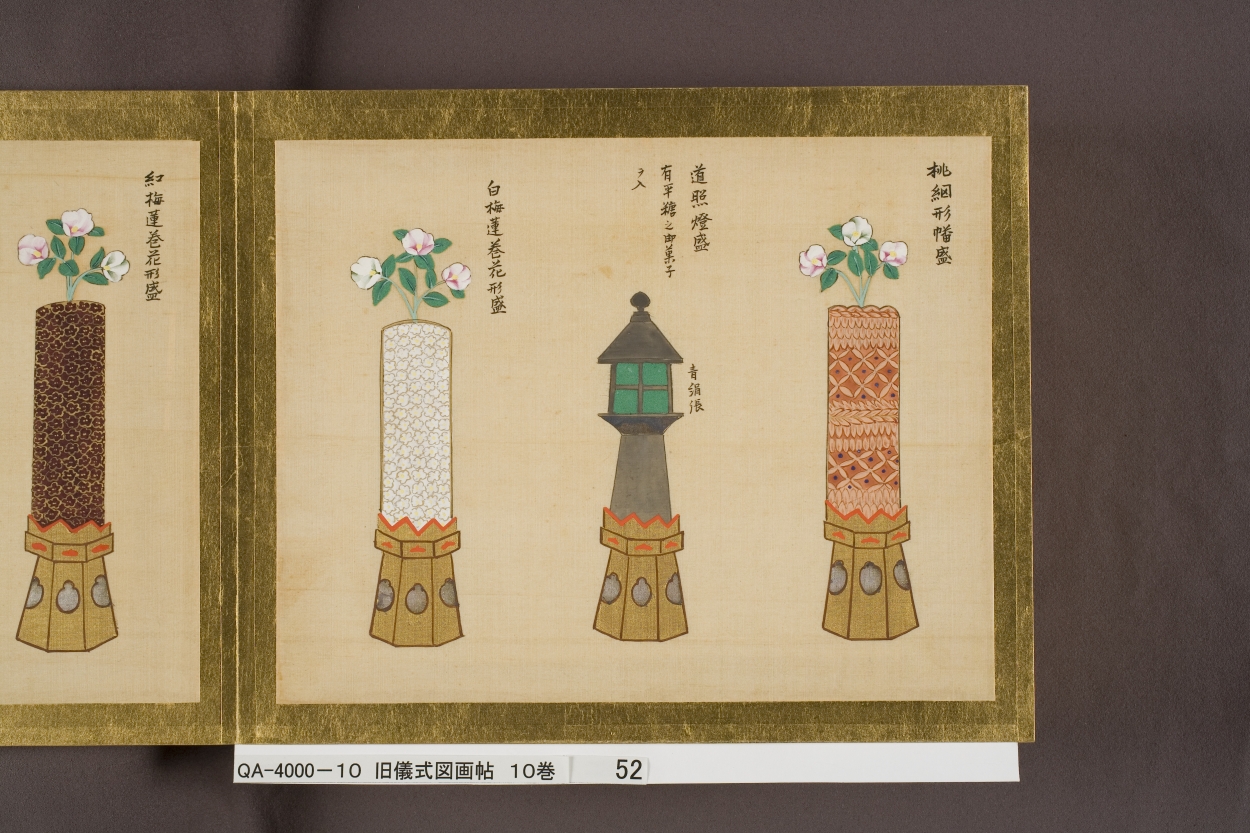 桃絪形幡盛
道照燈盛
有平糖之御菓子
ヲ入
青絹張
白梅蓮巻花形盛
紅梅蓮巻花形盛
QA-4000-10 旧儀式図画帖 10巻 52